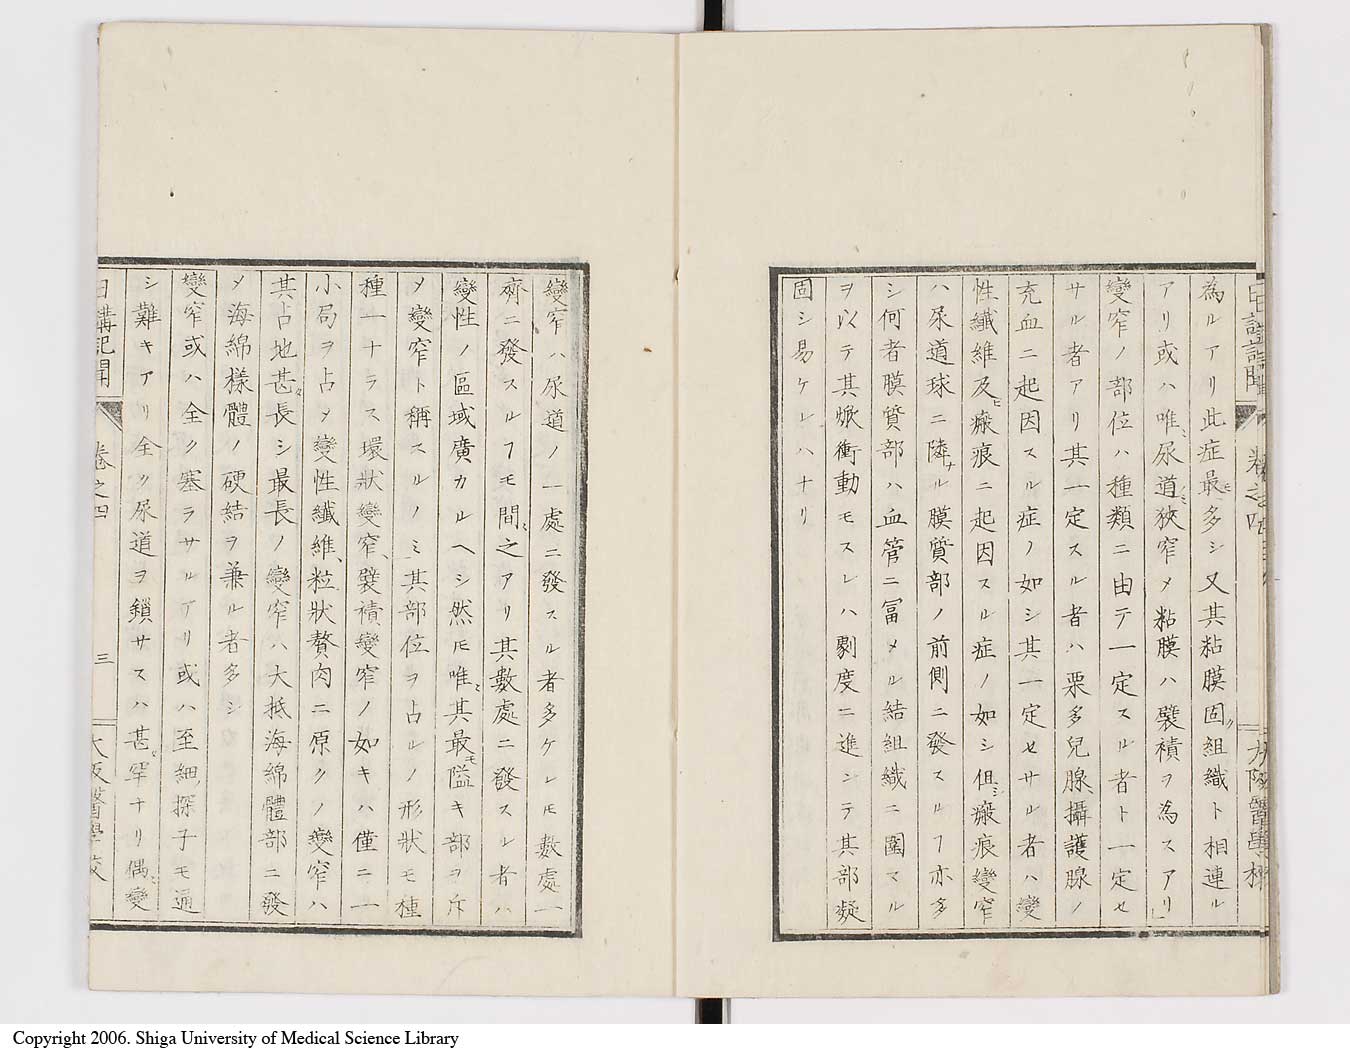 為ルアリ此症最モ多シ又其粘膜固ク組織ト相連ル
アリ或ハ唯ミ尿道ノミ狹窄メ粘膜ハ襞積ヲ為スアリ
變窄ノ部位ハ種類ニ由テ一定スル者ト一定セ
サル者アリ其一定スル者ハ栗多兒腺攝護腺ノ
充血ニ起因スル症ノ如シ其一定セサル者ハ變
性纖維及ヒ瘢痕ニ起因スル症ノ如シ但シ瘢痕變窄
ハ尿道球ニ隣ナル膜質部ノ前側ニ發スルヿ亦多
シ何者膜質部ハ血管ニ冨メル結組織ニ圍マル
ヲ以テ其焮衝動モスレハ劇度ニ進ンテ其部凝
固シ易ケレハナリ
變窄ハ尿道ノ一處ニ發スル者多ケレモ數處一
齊ニ發スルヿモ間ミ之アリ其數處ニ發スレ者ハ
變性ノ區域廣カルヘシ然モ唯ミ其最モ隘キ部ヲ斥
メ變窄ト稱スルノミ其部位ヲ占ルノ形狀モ種
種一ナラス環狀變窄、襞積變窄ノ如キハ僅ニ一
小局ヲ占メ變性纖維、粒狀贅肉ニ原クノ變窄ハ
其占地甚タ長シ最長ノ變窄ハ大抵海綿體部ニ發
メ海綿樣體ノ硬結ヲ兼ル者多シ
變窄或ハ全ク塞ラサルアリ或ハ至細ノ探子モ通
シ難キアリ全ク尿道ヲ鎖サスハ甚タ罕ナリ偶ミ變
日講記聞
卷之四
三
大阪醫學校